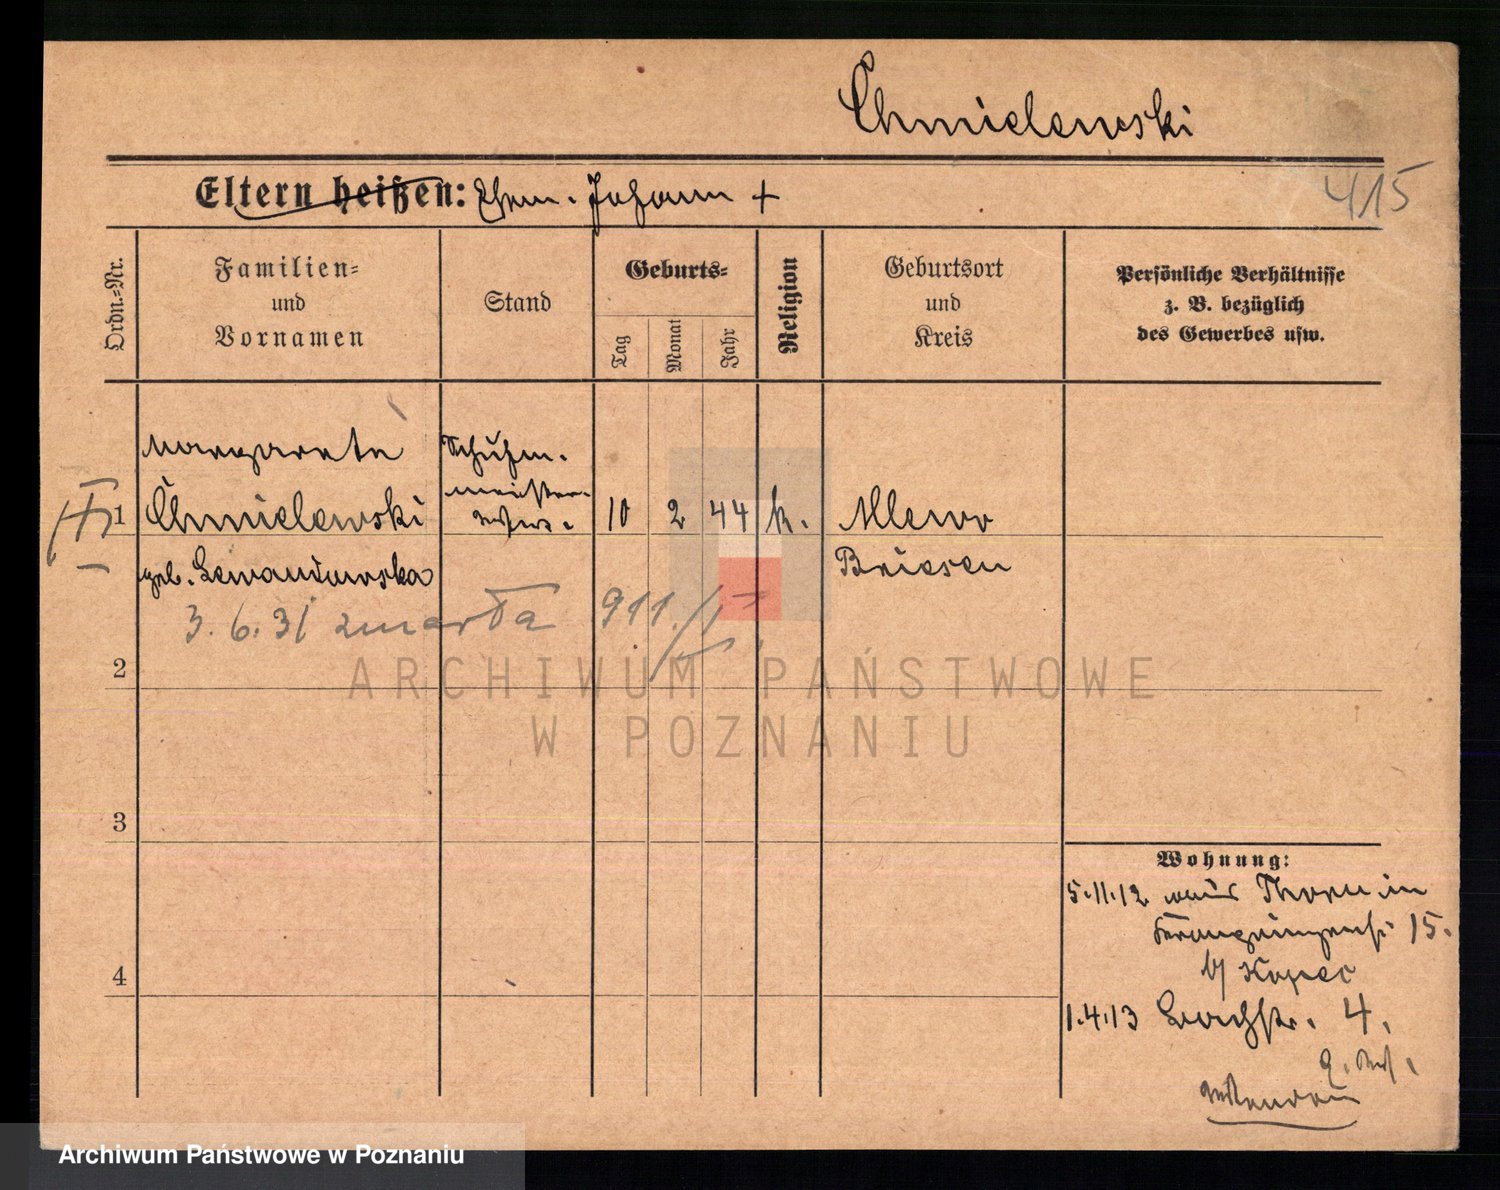 Chmielewski
415
Eltern heißen: Ehem. Johann +
Ordn.=Nr.
Familien=
und
Vornamen
Stand
Geburts=
Tag
Monat
Jahr
Religion
Geburtsort
und
Kreis
Persönliche Verhältnisse
z. B. bezüglich
des Gewerbes usw.
Margareta
Schuhm.
meister
1 Chmielewski
10 2 44 k. Mlewo
geb. Lewandowska
Briesen
3.6.31 zmarła 911.
2
3
4
Wohnung:
5.11.12 aus Thorn in
15.
b/ Kopec
1.4.13 Bachstr. 4.
ARCHIWUM PAŃSTWOWE
W POZNANIU
Archiwum Państwowe w Poznaniu